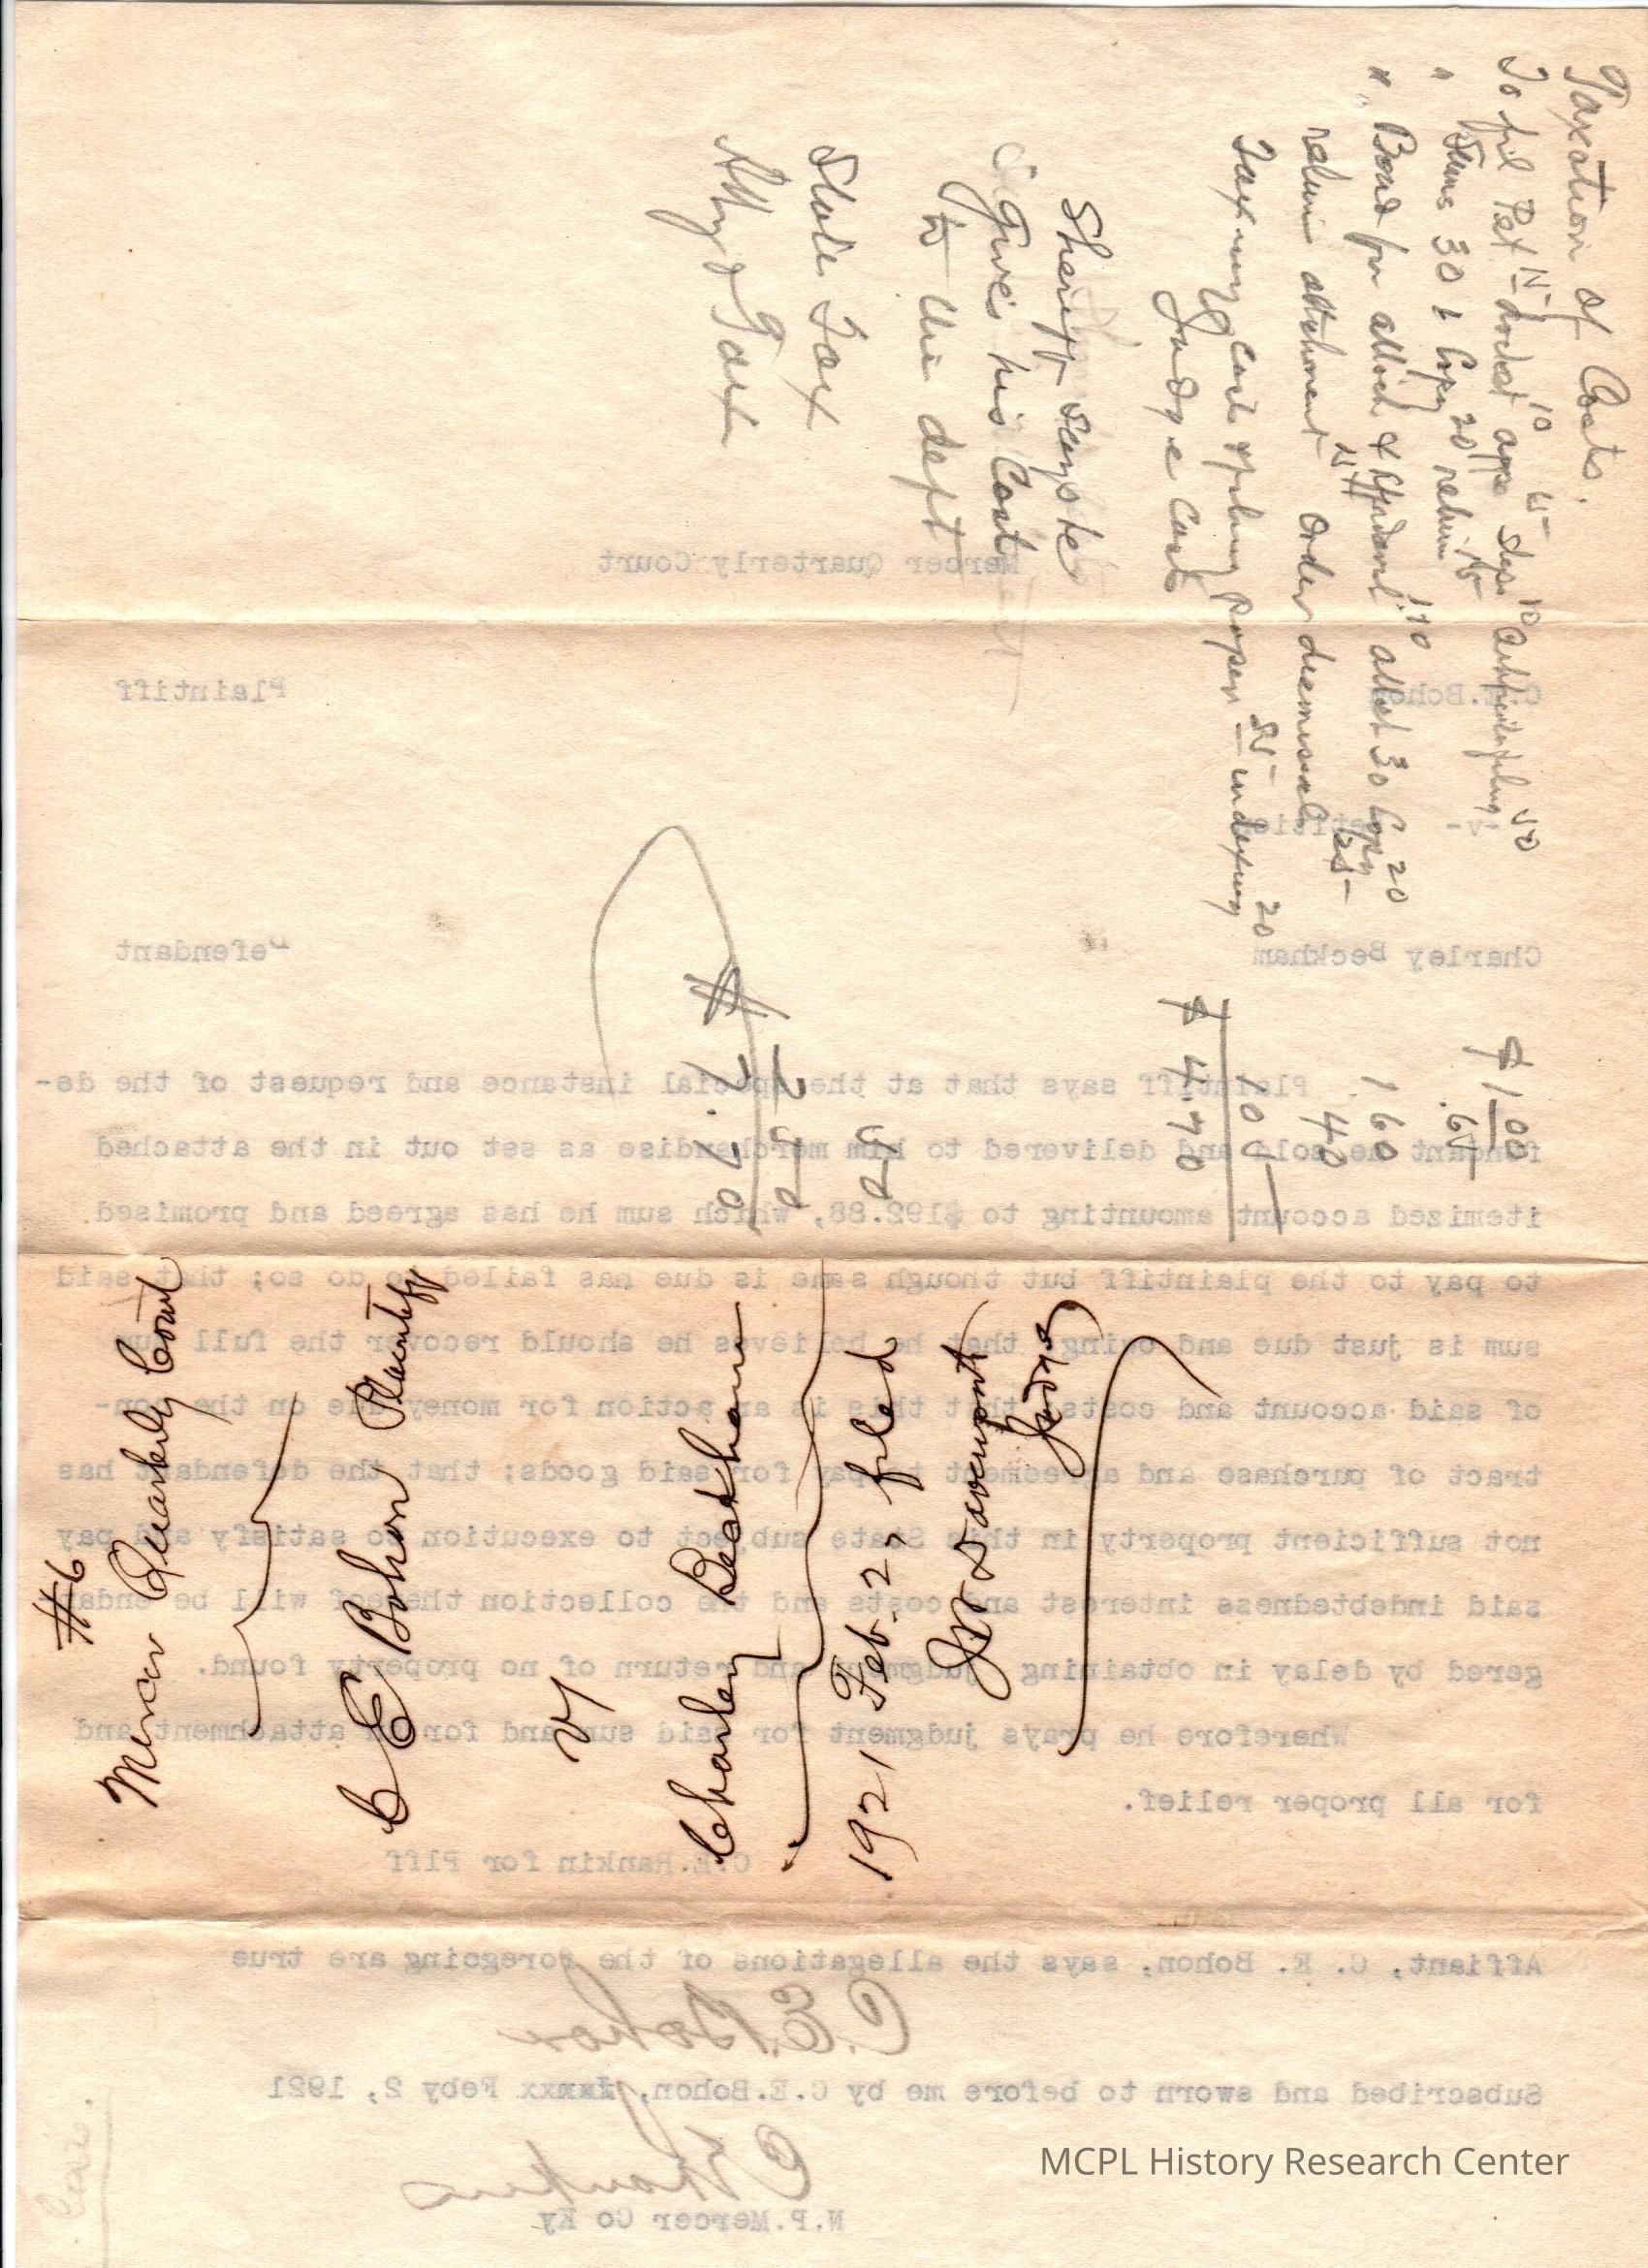 Taxation of Costs.
To fil Pet 15 docket 10 appe 15 steps 10 filing 50 $1.00
" Sums 30 & Copy 20 return 15 .65
" Bond for attach & affidavit 1.10 attact 30 Copy 20 1 60
return attachment 15 order dismissal 25 40
Taxing cost & filing papers 85 indexing 20 1 05
Judge Cost $4.70
Sheriff says he
gives his Cost
to the deft
State Tax 50
Atty Tax 2 50
$7.70
#6
Mercer Quarterly Court
C E Bohon Plaintiff
V
Charley Beckham
1921 Feb. 2, filed
Davenport
Judge
Mercer Quarterly Court
C.E.Bohon Plaintiff
-v- Petition
Charley Beckham Defendant
Plaintiff says that at the special instance and request of the de-
fendant he sold and delivered to him merchandise as set out in the attached
itemized account amounting to $192.88, which sum he has agreed and promised
to pay to the plaintiff but though same is due has failed to do so; that said
sum is just due and owing; that he believes he should recover the full sum
of said account and costs; that this is an action for money due on the con-
tract of purchase and agreement to pay for said goods; that the defendant has
not sufficient property in this State subject to execution to satisfy and pay
said indebtedness interest and costs and the collection thereof will be endan
gered by delay in obtaining judgment and return of no property found.
Wherefore he prays judgment for said sum and for an attachment and
for all proper relief.
C.E.Rankin for Plff
Affiant, C. E. Bohon, says the allegations of the foregoing are true
C.E. Bohon
Subscribed and sworn to before me by C.E.Bohon, Feby 2, 1921
N.P.Mercer Co Ky
MCPL History Research Center